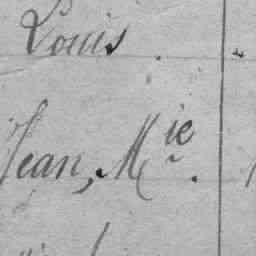 Louis
Jean, Mie.